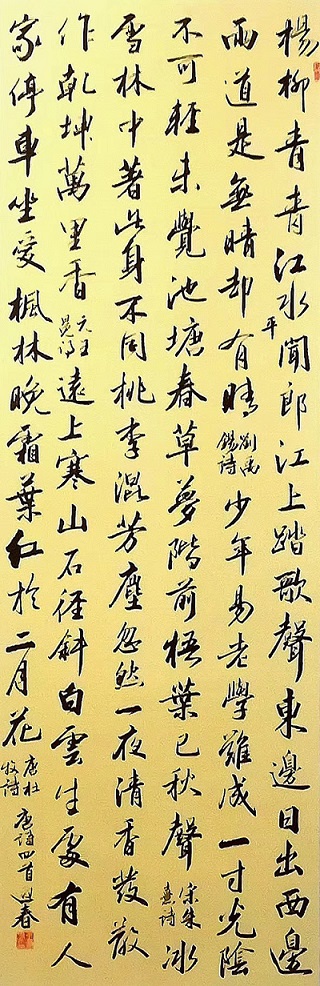 楊柳青青江水平聞郎江上踏歌聲東邊日出西邊
雨道是無晴却有晴劉禹錫詩少年易老學難成一寸光陰
不可輕未覺池塘春草夢階前梧葉已秋聲宋朱熹詩冰
雪林中著此身不同桃李混芳塵忽然一夜清香發散
作乾坤萬里香元王冕詩遠上寒山石徑斜白雲生處有人
家停車坐愛楓林晚霜葉紅於二月花唐杜牧詩唐詩四首春